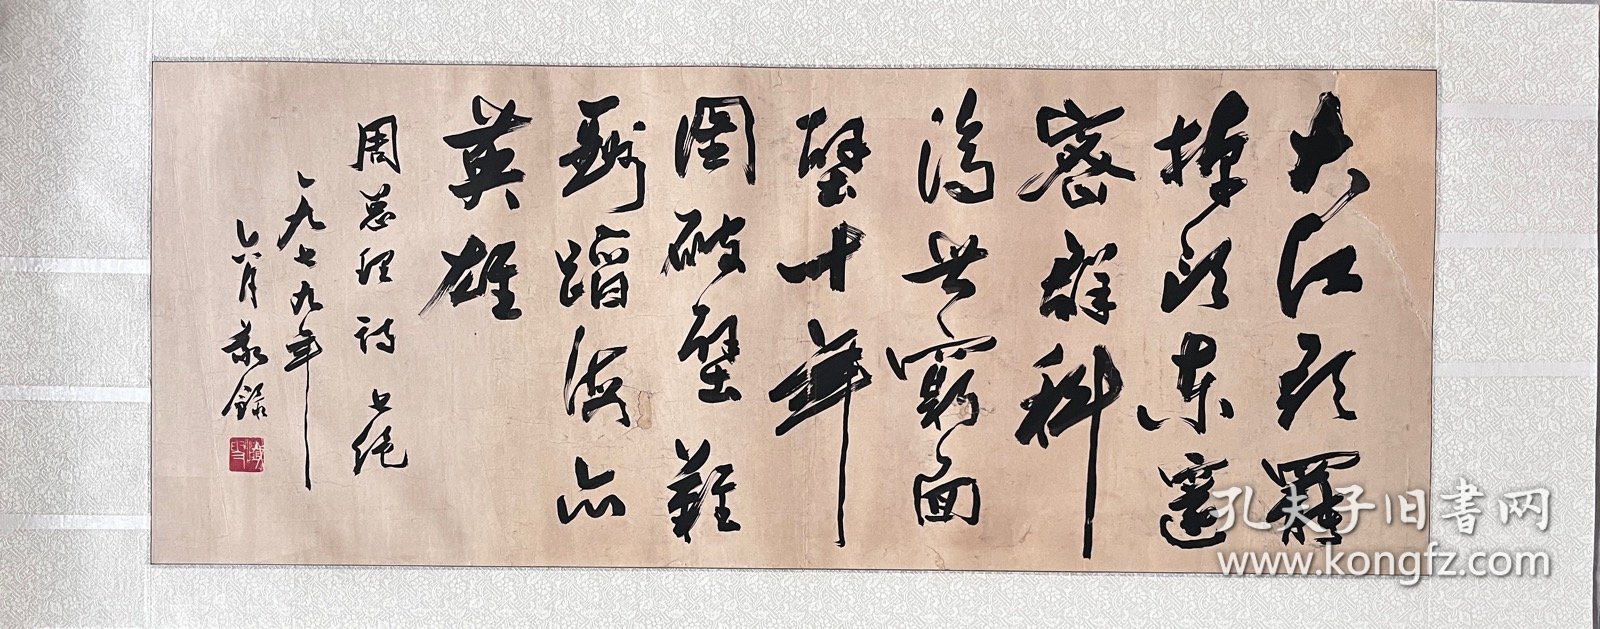 大江歌罷
掉頭東邃
密群科
濟世窮面
壁十年
圖破壁難
酬蹈海亦
英雄
周总理詩七绝
一九七九年
六月敬錄
孔夫子旧书网
www.kongfz.com